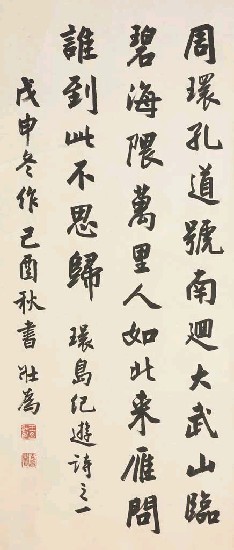 周環孔道號南迴大武山臨
碧海隈萬里人如此來雁問
誰到此不思歸 環島紀遊詩之一
戊申冬作己酉秋書 壯為